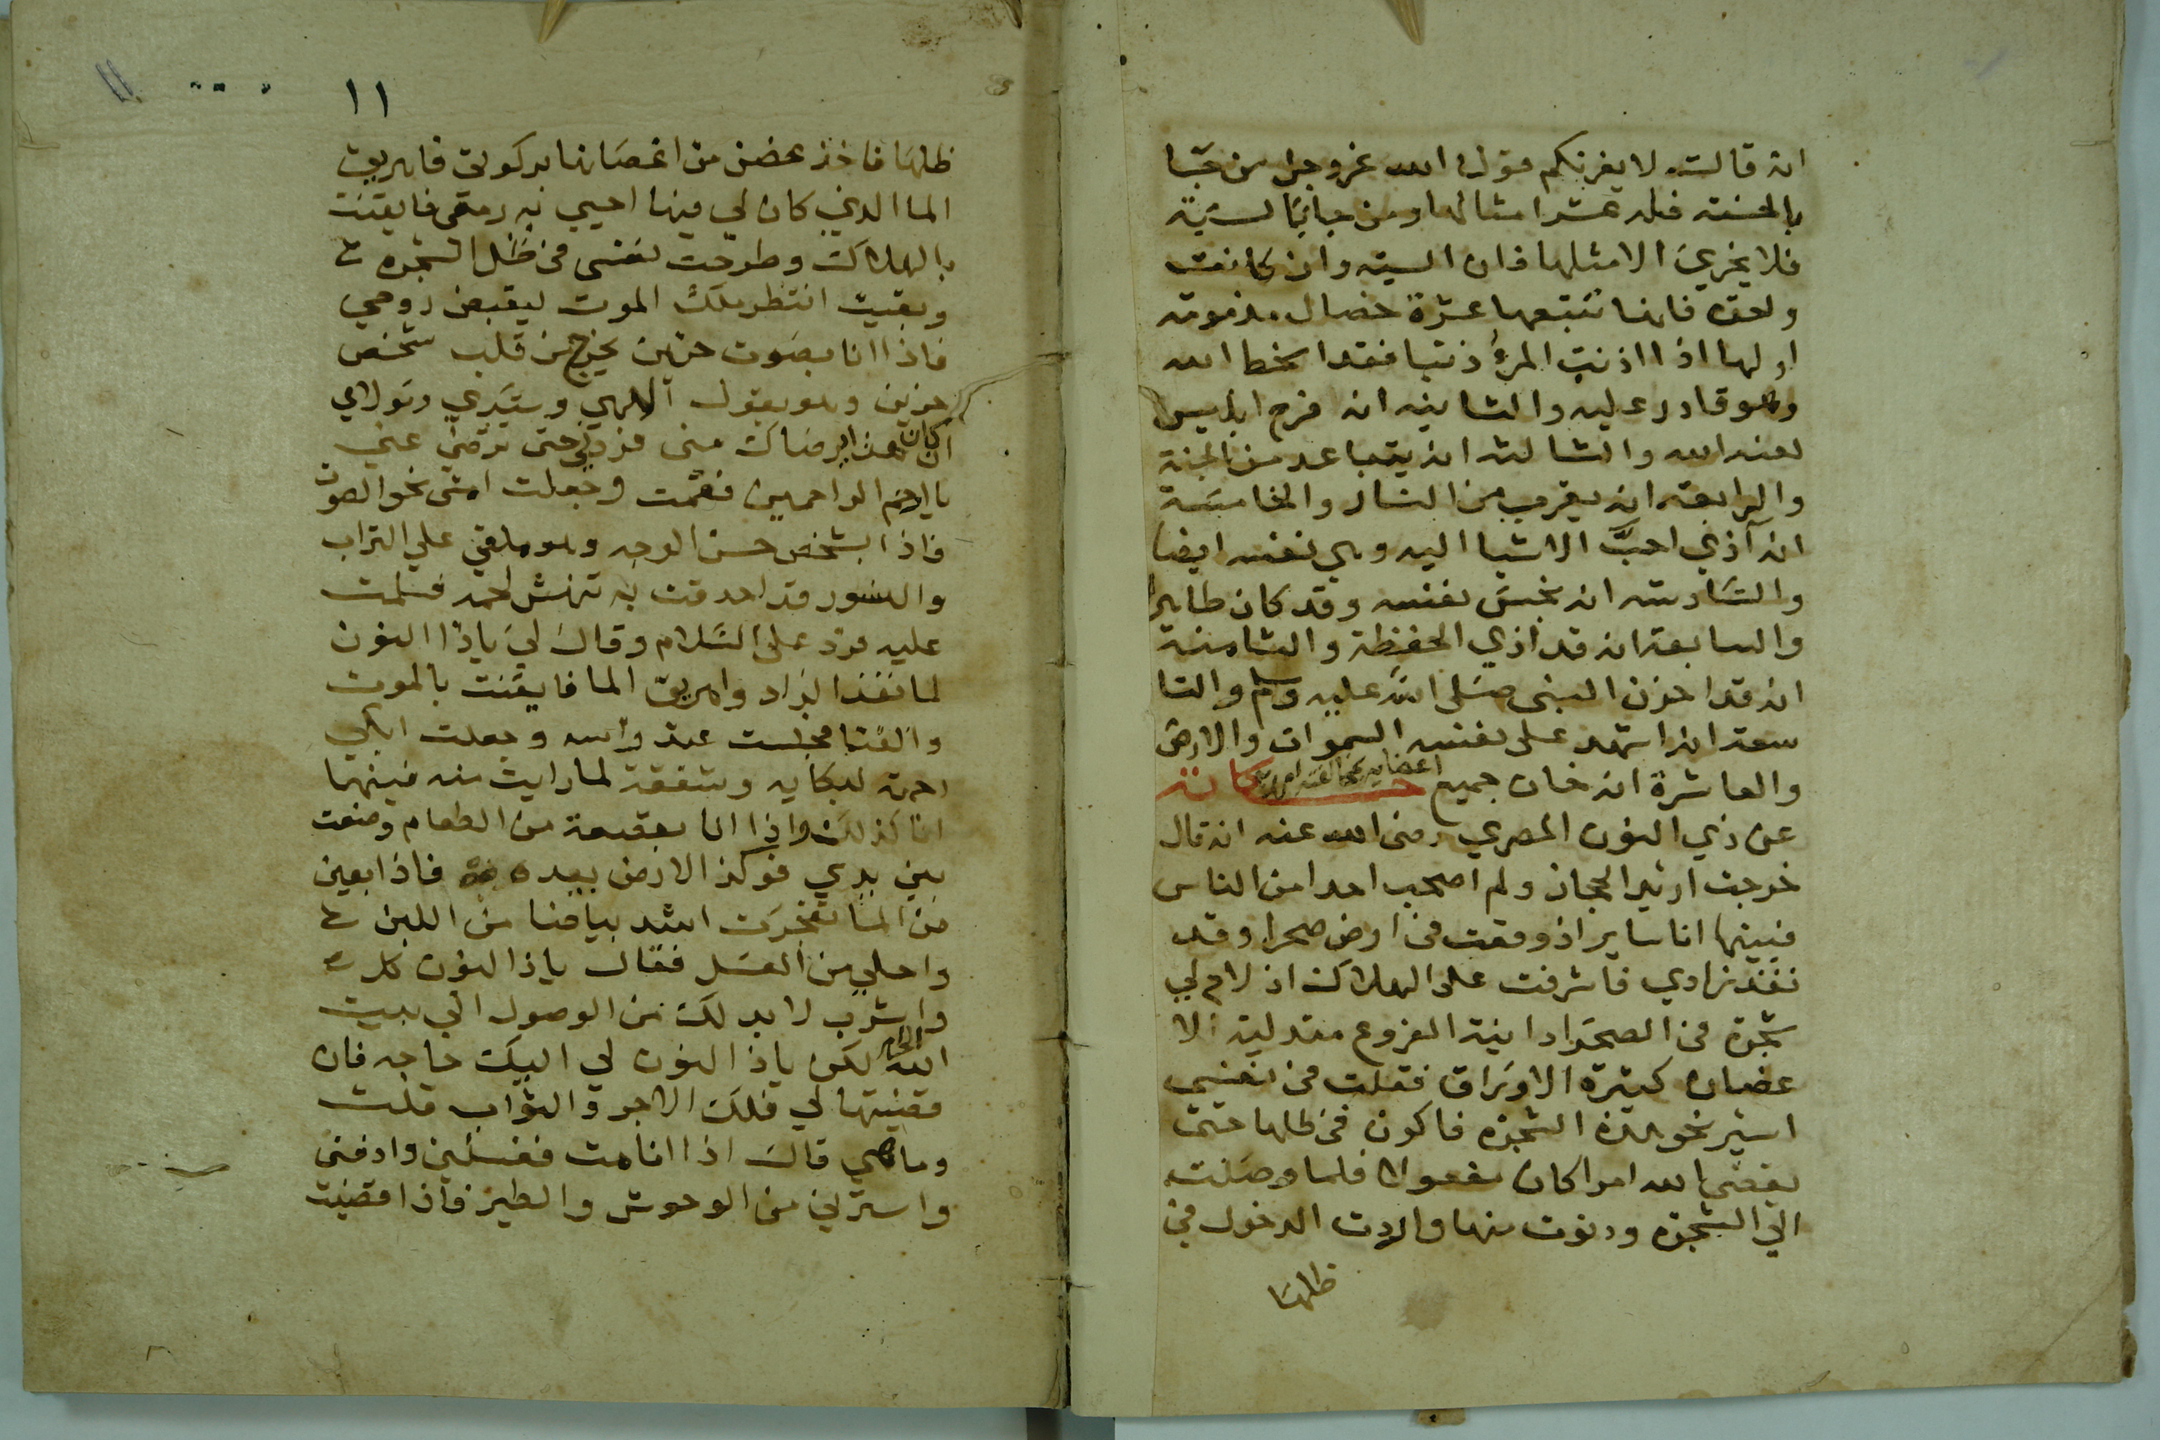 انه قالت لا يغرنكم قول الله عز وجل من جا
بالحسنة فله عشر امثالها ومن جا بالسيئة
فلا يجزي الا مثلها فان السيئه وان كانت
واحده فانها تتبعها عشرة خصال مذمومه
اولها اذا اذنب المرؤ ذنبا فقد اسخط الله
وهو قادر عليه والثانيه انه فرح ابليس
لعنه الله والثالثه انه يتباعد من الجنة
والرابعه انه يقرب من النار والخامسة
انه آذي احبَّ الاشيا اليه وهي نفسه ايضا
والسادسه انه نجس نفسه وقد كان طاهرا
والسابعة انه قد اذي الحفظة والثامنة
انه قد احزن النبي صلى الله عليه وسلم والتا
سعة انه اشهد على نفسه السموات والارض
والعاشرة انه خان جميع اعضايه حكاية
عن ذي النون المصري رضى الله عنه انه قال
خرجت اريد الحجاز ولم اصحب احدا من الناس
فبينما انا ساير اذ وقعت في ارض صحرا وقد
نفد زادي فاشرفت على الهلاك اذ لاح لي
شجرة في الصحرا دانية الفروع متدلية الا
غصان كثيرة الاوراق فقلت في نفسي
اسير نحو هذه الشجره فاكون في ظلها حتى
يقضي الله امرا كان مفعولا فلما وصلت
الي الشجره ودنوت منها واردت الدخول في
ظلها
١١
ظلها فاخذ غصن من اغصانها بركوتي فاهريق
الما الذي كان لي فيها احيي به رمقى فايقنت
بالهلاك وطرحت نفسى في ظل الشجره
وبقيت انتظر ملك الموت ليقبض روحي
فاذا انا بصوت حزين يخرج من قلب شخص
حزين وهو يقول آلهي وسيدي ومولاي
ان كان هذا رضاك منى فزدني حتى ترضي عني
يا ارحم الراحمين فقمت وجعلت امشى نحو الصوت
فاذا بشخص حسن الوجه وهو ملقي علي التراب
والنسور قد احدقت به تنهش لحمه فسلمت
عليه فرد علىَّ السلام وقال لي يا ذا النون
لما نفذ الزاد واهريق الما فايقنت بالموت
والفنا فجلست عند راسه وجعلت ابكي
رحمة لبكايه وشفقة لما رايت منه فبينما
انا كذلك واذا انا بقصعة من الطعام وضعت
بين يدي فركز الارض بيده فاذا بعين
من الما تفجرت اشد بياضا من اللبن
واحلي من العسل فقال يا ذا النون كل
واشرب لا بد لك من الوصول الي بيت
الله الحرام لكن يا ذا النون لي اليك حاجه فان
قضيتها لي فلك الاجر والثواب قلت
وما هي قال اذا انا مت فغسلني وادفني
واسترني من الوحوش والطير فاذا قضيت